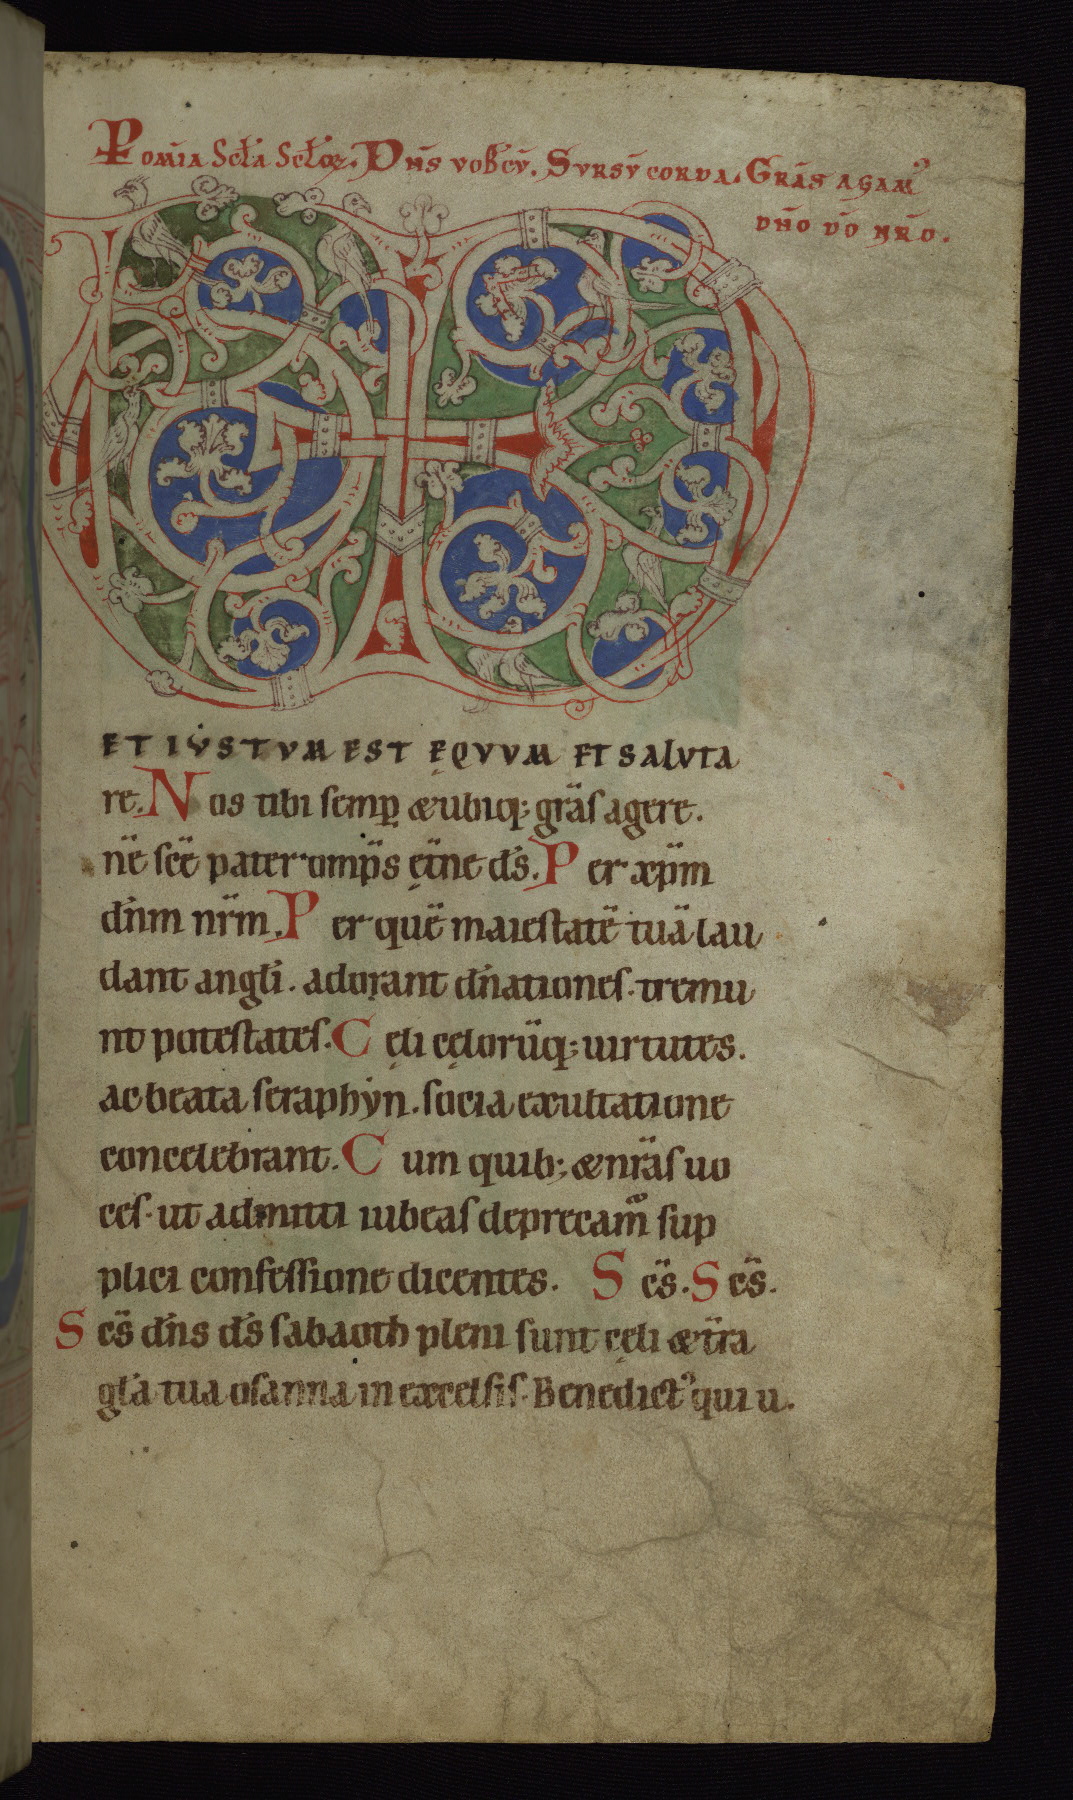 Pom̄ia Scła Scłoꝝ. Dn̄s vob̄cū. Svrsū corda. Grās agamꝰ
dn̄o dō nr̄o.
VD
ET IVSTVM EST ĘQVVM ET SALVTA
re. Nos tibi semꝑ & ubiq; grās agere.
dn̄e scē pater omps ęt̄ne ds̄. Per xp̄m
dn̄m nr̄m. Per quē maiestatē tuā lau
dant angl̄i. adorant dn̄ationes. tremu
nt potestates. Cęli cęlorūq; uirtutes.
ac beata seraphẏn. socia exultatione
concelebrant. Cum quib; & nr̄as uo
ces. ut admitti iubeas deprecamꝰ sup
plici confessione dicentes. Scs̄. Scs̄.
Scs̄ dn̄s ds̄ sabaoth pleni sunt cęli & t̄ra
gl̄a tua osanna in excelsis. Benedictꝰ qui u.